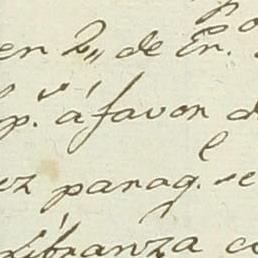 en 2,, de En.ro
á favor d
ez parag.l se
libranza